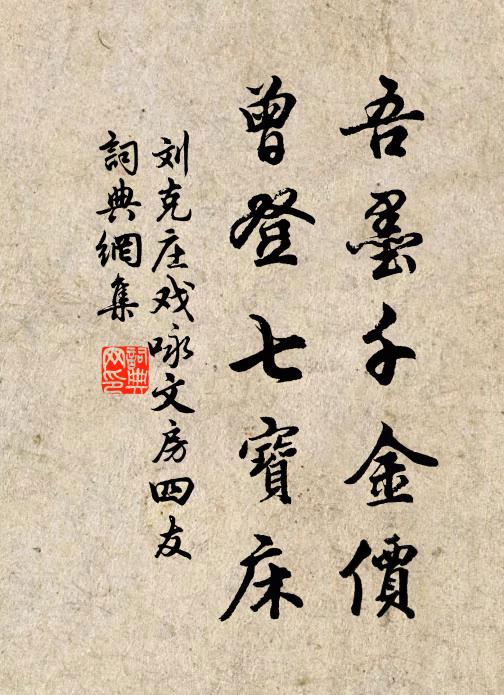 吾墨千金價
曾登七寶床
刘克庄戏咏文房四友
詞典網集
詞典网印